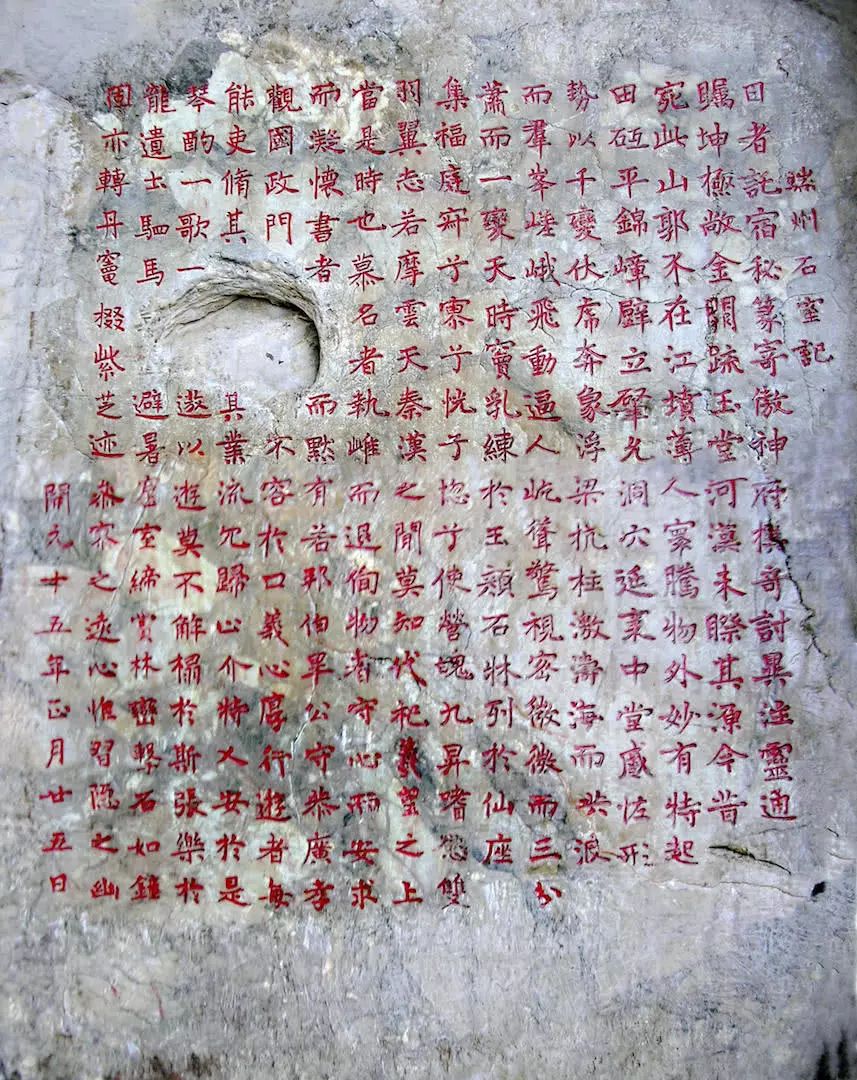 端州石室記
曰者託宿秘篆寄傲神府櫵奇討異注靈通
矚坤極敞金闕疏玉堂河漢未睽其源今昔
宛此山郭不在江墳薄人寰騰物外妙有特起
田砥平錦嶂壁立肇允洞穴延袤中堂處怪形
勢以千變伏席奔象浮梁抗柱激濤海而洪浪
而羣峯嵯峨飛動逼人屹聳驚視密微微而三分
蕭而一變天時竇乳練於玉顏石牀列於仙座
集福庭寂兮寥兮恍兮惚兮使營魂九昇嗜慾雙
羽翼志若摩雲天秦漢之間莫知代祀羲望之上
當是時也慕名者執雌而退徇物者守心而安求
而凝懷書者而黙有若邦伯畢公守恭廣孝
觀國政門不容於口義心厚行遊者每
能吏脩其其業流冗歸心介特乂安於是
琴酌一歌一遨以遊莫不解榻於斯張樂於
龍遺士駟馬避暑窟室締賞林巒擊石如鍾
固亦轉丹竈掇紫芝迹參寥之遠心惟習隱之幽
開元十五年正月廿五日